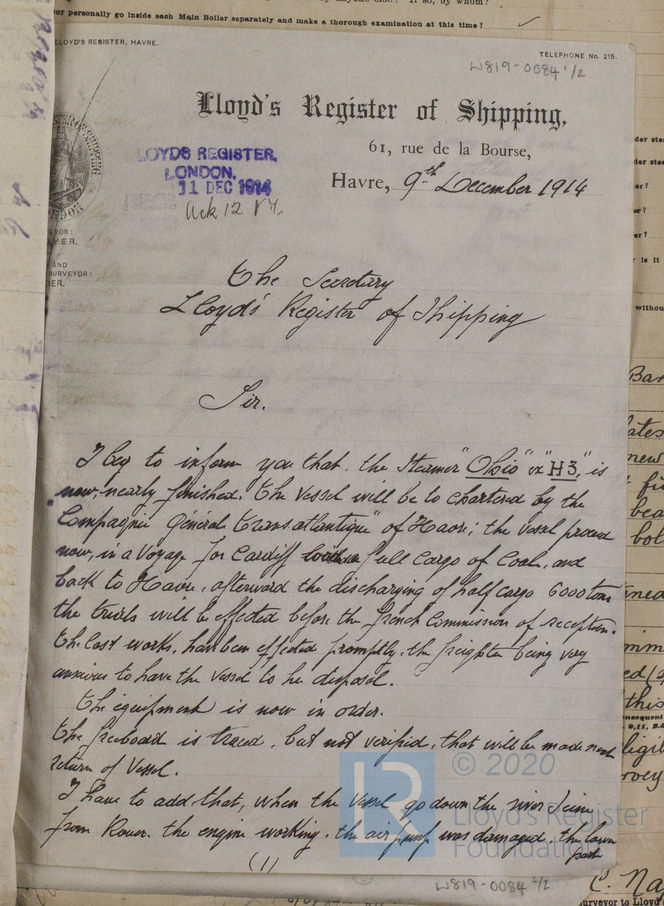 or personally go inside each Main Boiler separately and make a thorough examination at this time?
LLOYD'S REGISTER, HAVRE.
TELEPHONE No. 215.
W819-0084 1/2
Lloyd's Register of Shipping,
61, rue de la Bourse,
Havre, 9th December 1914
LOYDS REGISTER,
LONDON.
11 DEC 1914
Ack 12
The Secretary
Lloyd's Register of Shipping
Sir.
I beg to inform you that, the Steamer "Ohio" "ex" "H3," is
now, nearly finished. The vessel will be to chartered by the
Compagnie Général transatlantique" of Havre; the vessel proceed
now, in a Voyage for Cardiff full cargo of Coal, and
back to Havre, afterward the discharging of half cargo 6000 tons
the trials will be effected before the french Commission of reception.
The last works, have been effected promptly, the freighter being very
anxious to have the vessel to he disposal.
The equipment is now in order.
The freeboard is traced, but not verified, that will be made next
return of Vessel.
I have to add that, when the Vessel go down the river Seine
from Rouen the engine working, the air pump was damaged, the lower
part
(1)
© 2020
Lloyd's Register
Foundation
W819-0084 1/2